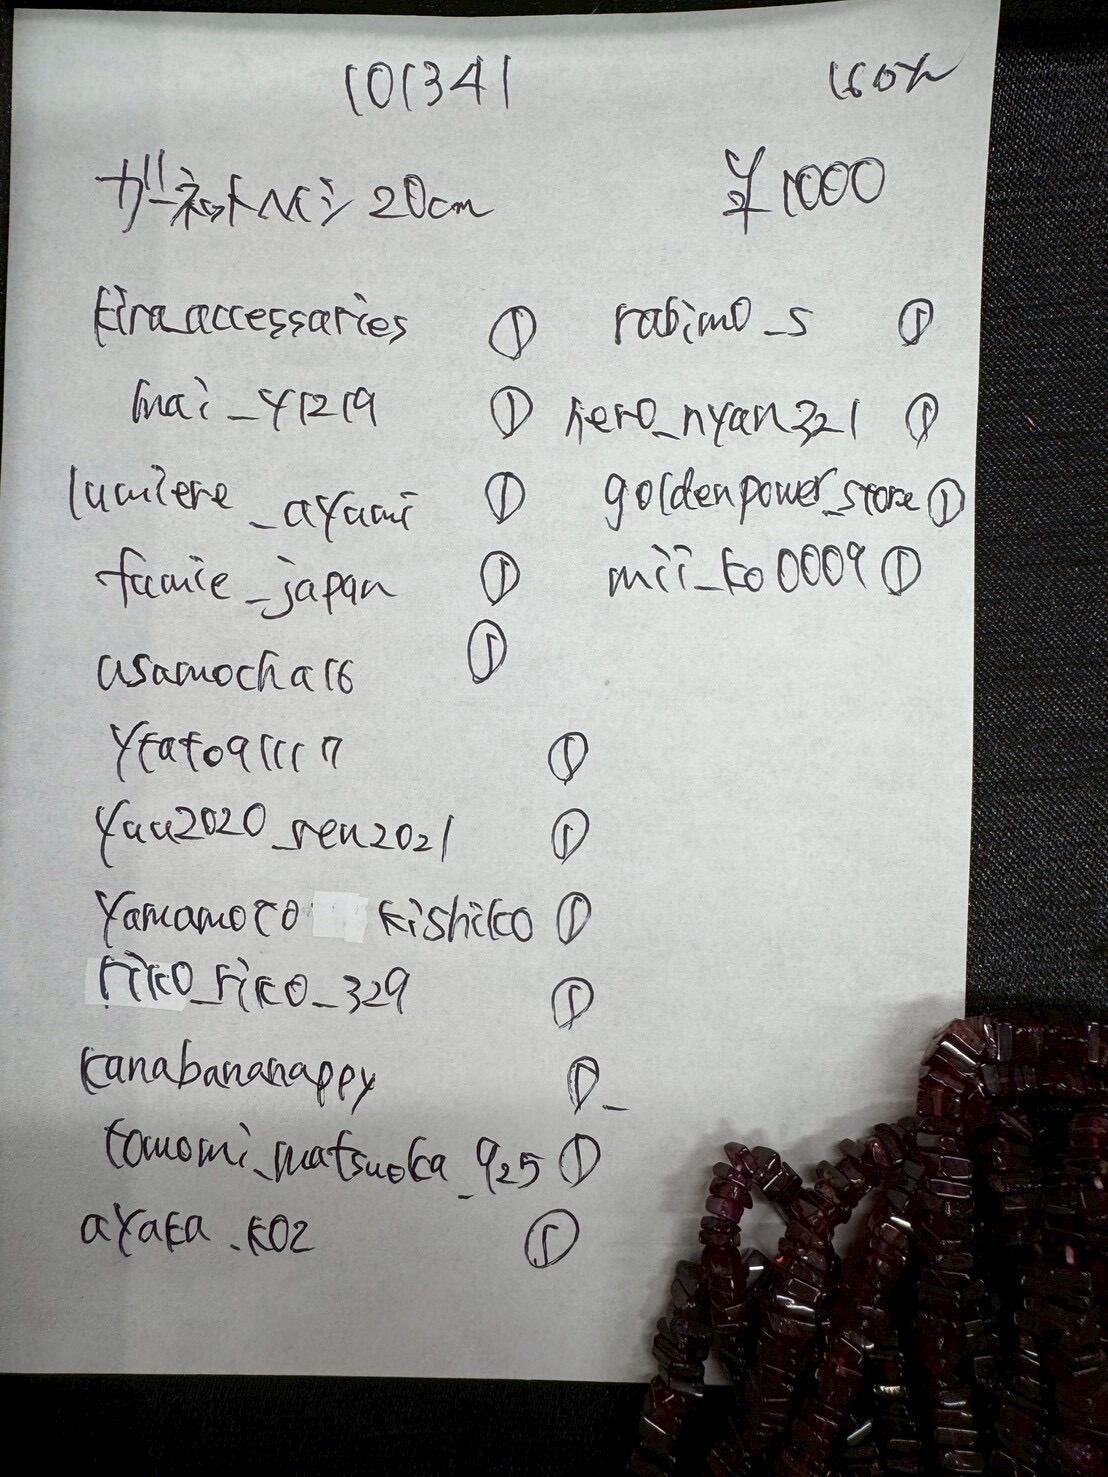 101341
ガーネット 20cm
¥1000
kira_accessaries ①
mai_y1219 ①
lumiere_ayami ①
famie_japan ①
usamocha16 ①
①
yuu2020_ren2021 ①
yamamoto kishiko ①
riko_riko_329 ①
kanabananappy ①
tomomi_matsuoka_925 ①
ayaka.k02 ①
rabimo_s ①
①
goldenpower_store ①
mii_ko0009 ①